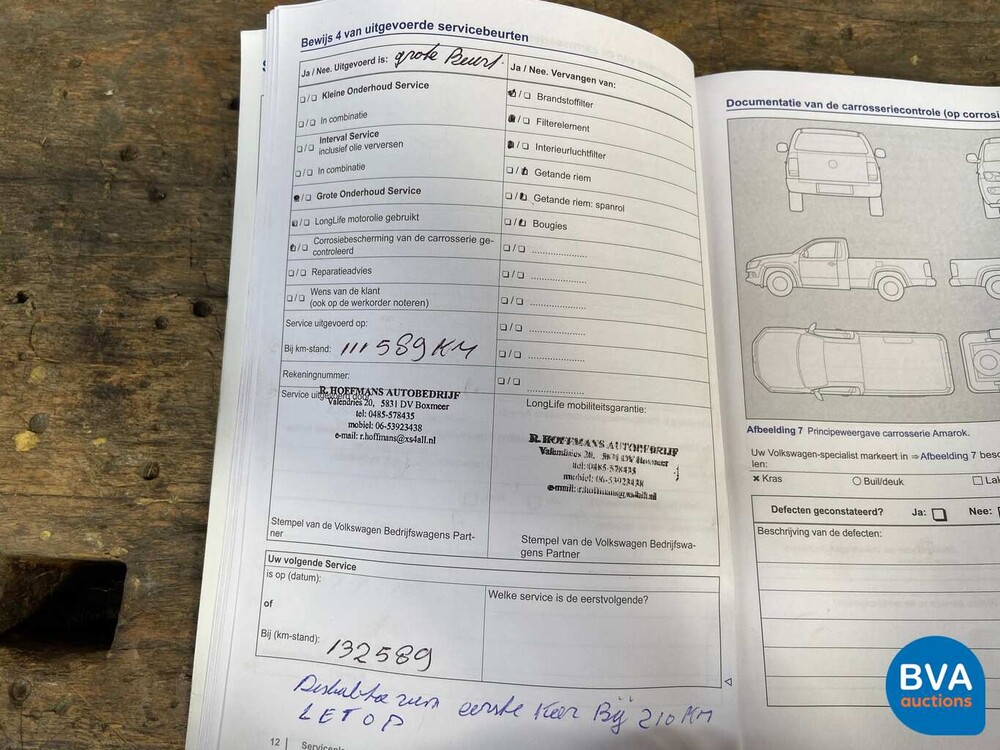 Bewijs 4 van uitgevoerde servicebeurten
Ja / Nee. Uitgevoerd is: grote Beurt.
Kleine Onderhoud Service
In combinatie
Interval Service
inclusief olie verversen
In combinatie
Grote Onderhoud Service
LongLife motorolie gebruikt
Corrosiebescherming van de carrosserie ge-
controleerd
Reparatieadvies
Wens van de klant
(ook op de werkorder noteren)
Service uitgevoerd op:
Bij km-stand: 111 589 KM
Rekeningnummer:
Service uitgevoerd door:
R. HOFFMANS AUTOBEDRIJF
Valendries 20, 5831 DV Boxmeer
tel: 0485-578435
mobiel: 06-53923438
e-mail: r.hoffmans@xs4all.nl
Stempel van de Volkswagen Bedrijfswagens Part-
ner
Ja / Nee. Vervangen van:
Brandstoffilter
Filterelement
Interieurluchtfilter
Getande riem
Getande riem: spanrol
Bougies
LongLife mobiliteitsgarantie:
R. HOFFMANS AUTOBEDRIJF
Valendries 20, 5831 DV Boxmeer
tel: 0485-578435
mobiel: 06-53923438
e-mail: r.hoffmans@xs4all.nl
Stempel van de Volkswagen Bedrijfswa-
gens Partner
Uw volgende Service
is op (datum):
of
Bij (km-stand): 132589
Welke service is de eerstvolgende?
eerste keer Bij 210 KM
LET OP
12
Documentatie van de carrosseriecontrole (op corrosi
Afbeelding 7 Principeweergave carrosserie Amarok.
Uw Volkswagen-specialist markeert in ⇒ Afbeelding 7 besc
len:
× Kras
Buil/deuk
Lak
Defecten geconstateerd? Ja: Nee:
Beschrijving van de defecten:
BVA
auctions